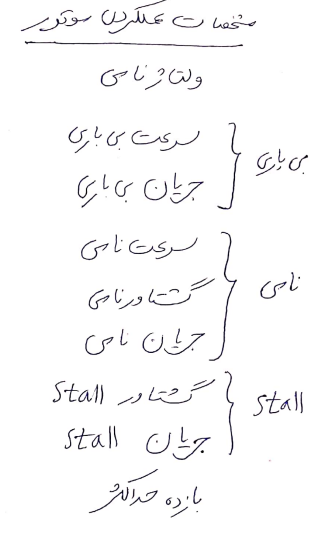 مشخصات عملکردی موتور
ولتاژ نامی
سرعت بی باری
جریان بی باری
بی باری
سرعت نامی
گشتاور نامی
جریان نامی
نامی
گشتاور Stall
جریان Stall
Stall
بازده حداکثر